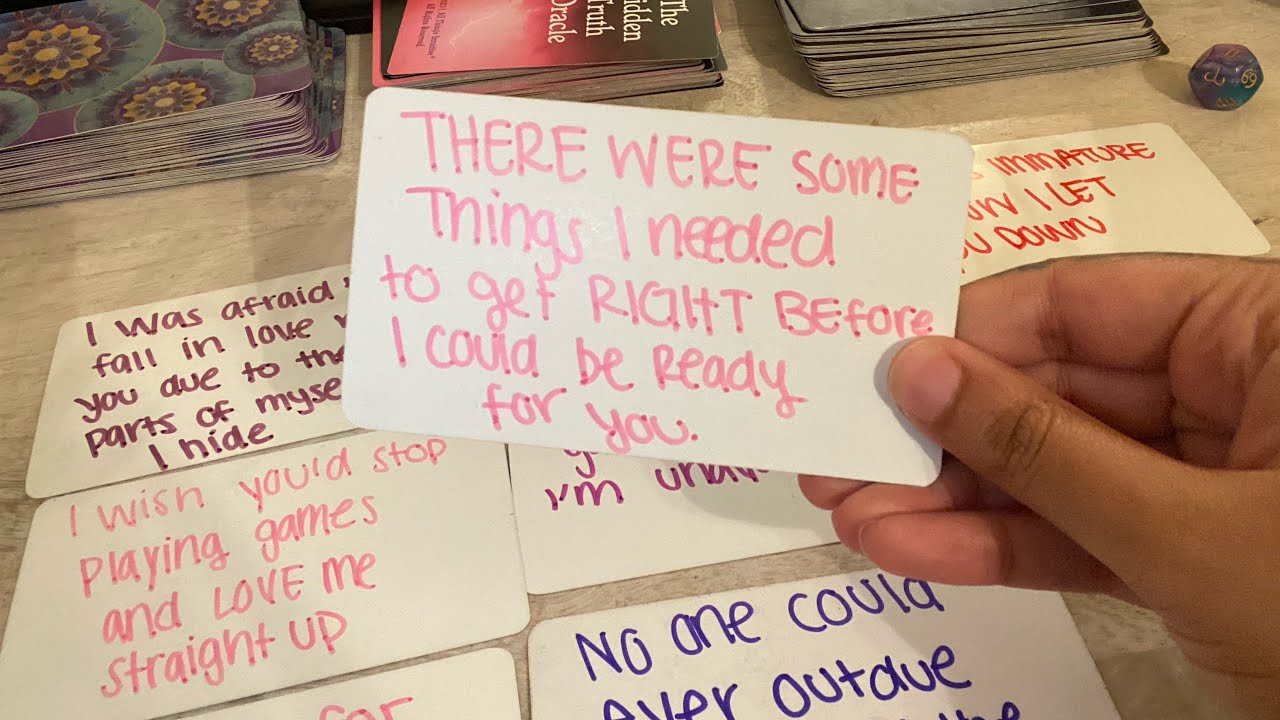 The
idden
Truth
Oracle
All Rights Reserved.
THERE WERE SOME
Things I needed
to get RIGHT BEfore
I could be Ready
for you.
IMMATURE
I LET
DOWN
I was afraid
fall in love
you due to
parts of
I hide
I wish you'd stop
playing games
and LOVE me
straight up
I'm
No one could
ever outdue
for